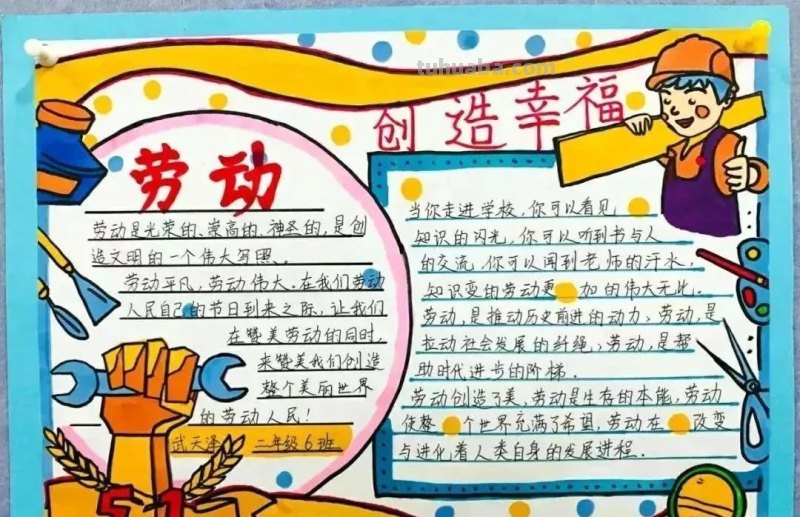 tuhuaba.com
创造幸福
劳动
劳动是光荣的、崇高的、神圣的,是创
造文明的一个伟大写照.
劳动平凡,劳动伟大.在我们劳动
人民自己的节日到来之际、让我们
在赞美劳动的同时,
来赞美我们创造
整个美丽世界
的劳动人民!
武天泽 二年级6班
51
当你走进学校,你可以看见
知识的闪光,你可以听到书与人
的交流,你可以闻到老师的汗水,
知识变的劳动更加的伟大无比.
劳动,是推动历史前进的动力,劳动,是
拉动社会发展的纤绳,劳动,是帮
助时代进步的阶梯.
劳动创造了美,劳动是生存的本能,劳动
使整个世界充满了希望,劳动在改变
与进化着人类自身的发展进程.